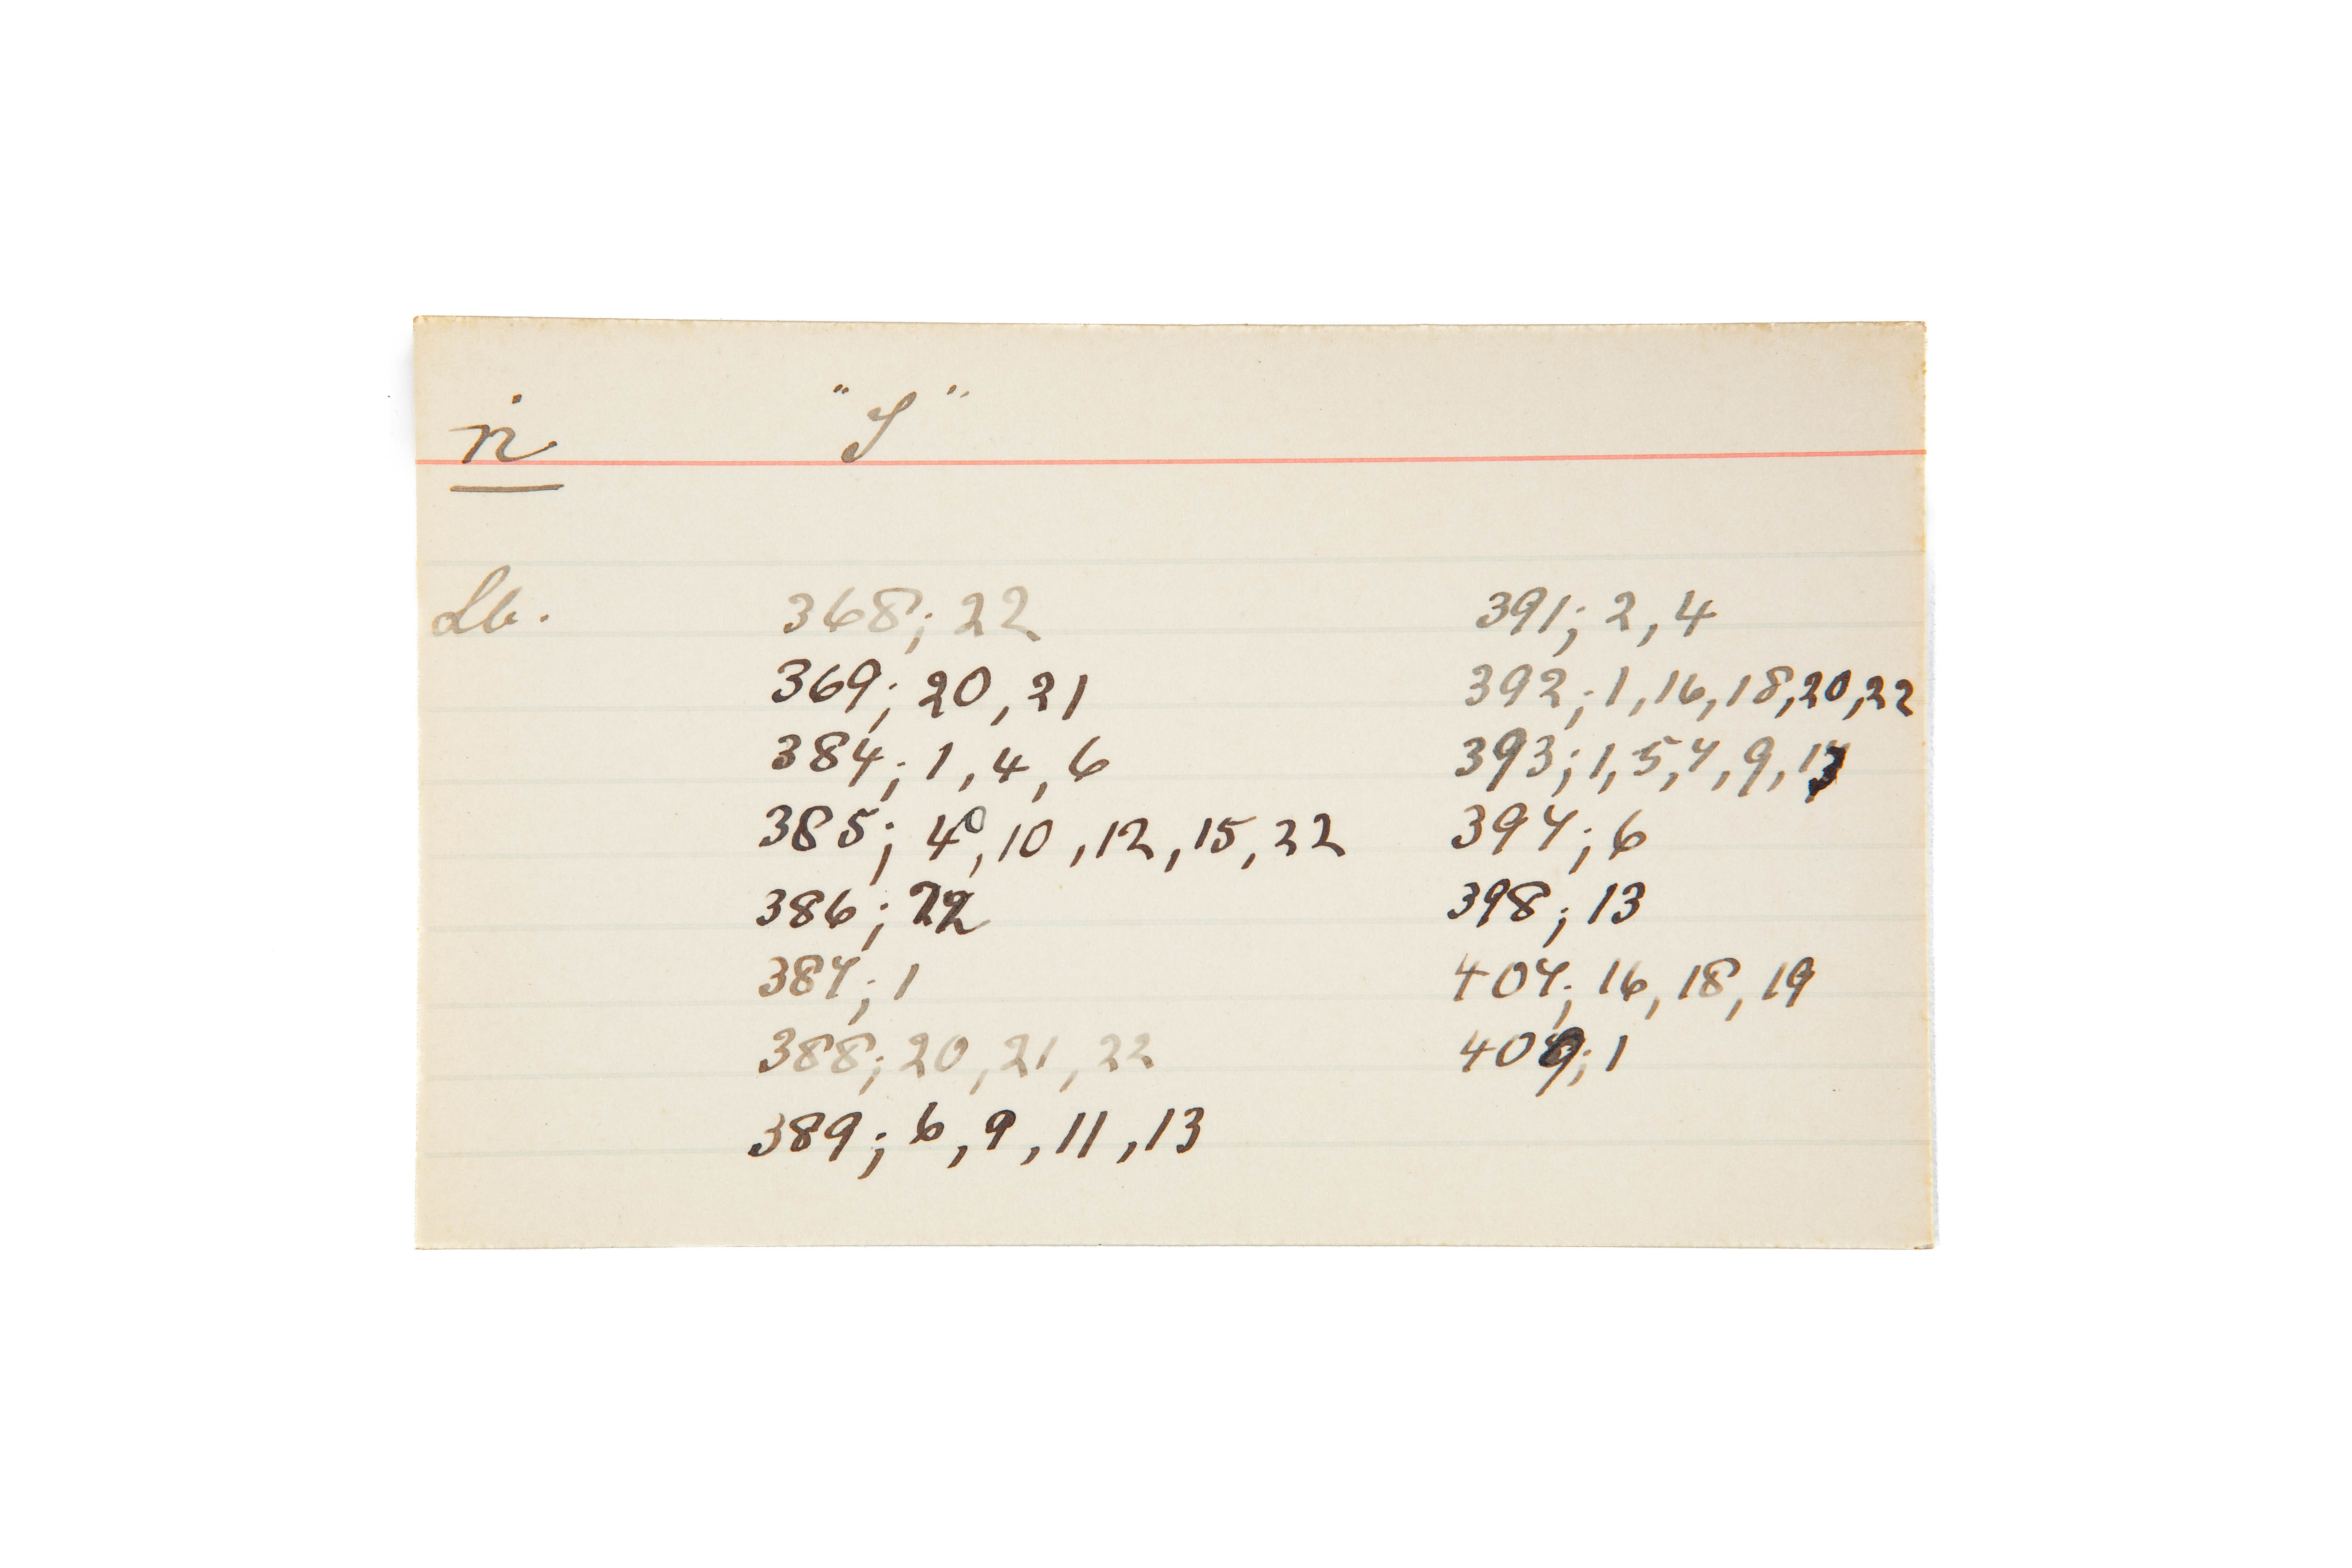 ṅ "I"
Lb.
368; 22
369; 20, 21
384; 1, 4, 6
385; 4⁰, 10, 12, 15, 22
386; 22
387; 1
388; 20, 21, 22
389; 6, 9, 11, 13
391; 2, 4
392; 1, 16, 18, 20, 22
393; 1, 5, 7, 9, 13
397; 6
398; 13
407; 16, 18, 19
409; 1